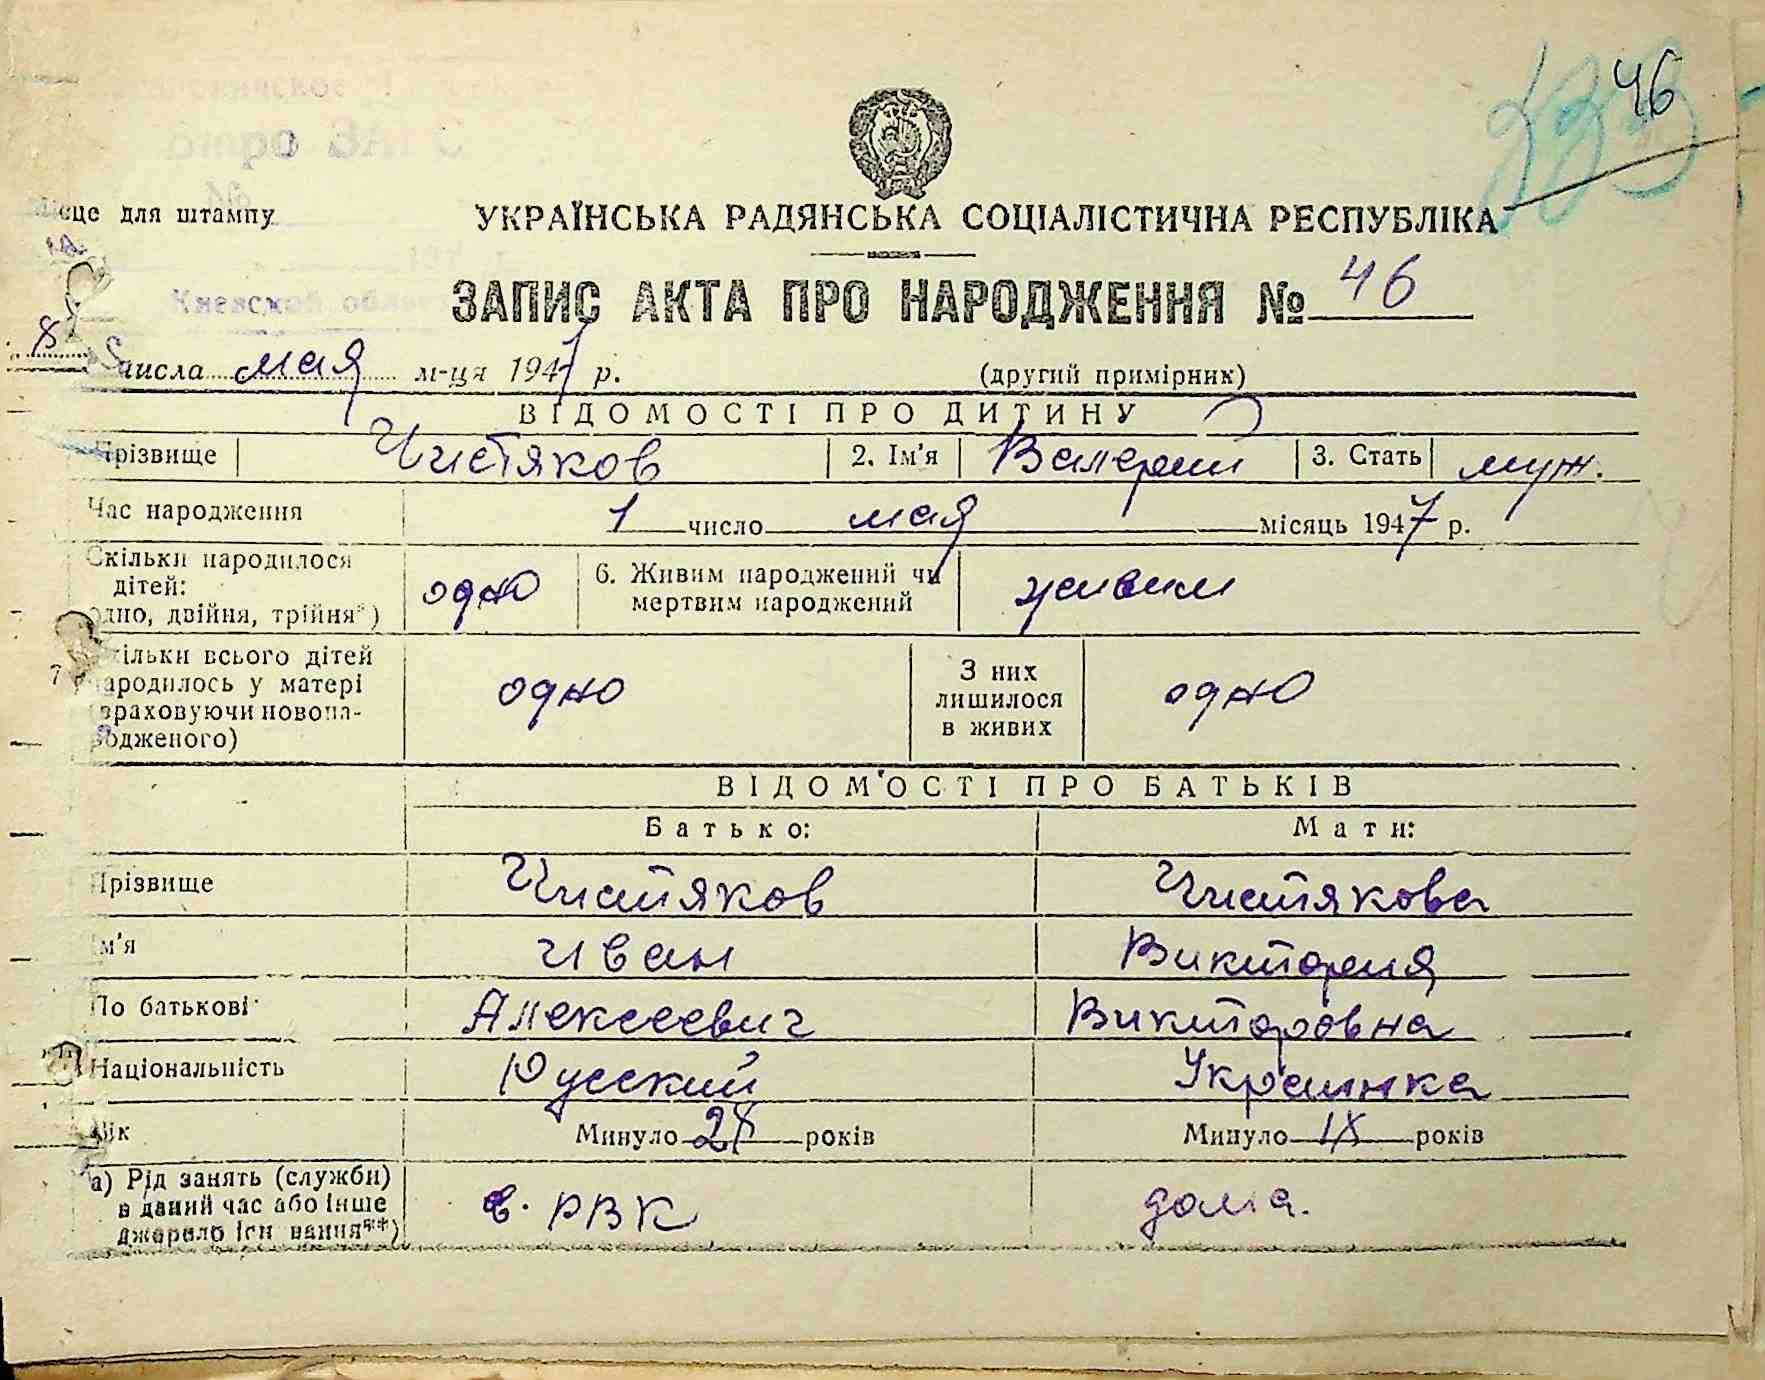 46
бюро ЗАГС
№
ісце для штампу
УКРАЇНСЬКА РАДЯНСЬКА СОЦІАЛІСТИЧНА РЕСПУБЛІКА
Киевской
ЗАПИС АКТА ПРО НАРОДЖЕННЯ № 46
8 числа мая м-ця 1947 р. (другий примірник)
ВІДОМОСТІ ПРО ДИТИНУ
Прізвище Чистяков 2. Ім'я Валерий 3. Стать муж.
Час народження 1 число мая місяць 1947 р.
Скільки народилося
дітей:
одно, двійня, трійня*) одно 6. Живим народжений чи
мертвим народжений живим
7 кільки всього дітей
народилось у матері
враховуючи новона-
родженого) одно З них
лишилося
в живих одно
ВІДОМОСТІ ПРО БАТЬКІВ
Батько: Мати:
Прізвище Чистяков Чистякова
Ім'я Иван Виктория
По батькові Алексеевич Викторовна
Національність Русский Украинка
Вік Минуло 28 років Минуло 18 років
а) Рід занять (служби)
в даний час або інше
джерело існ вання**) РВК дома.